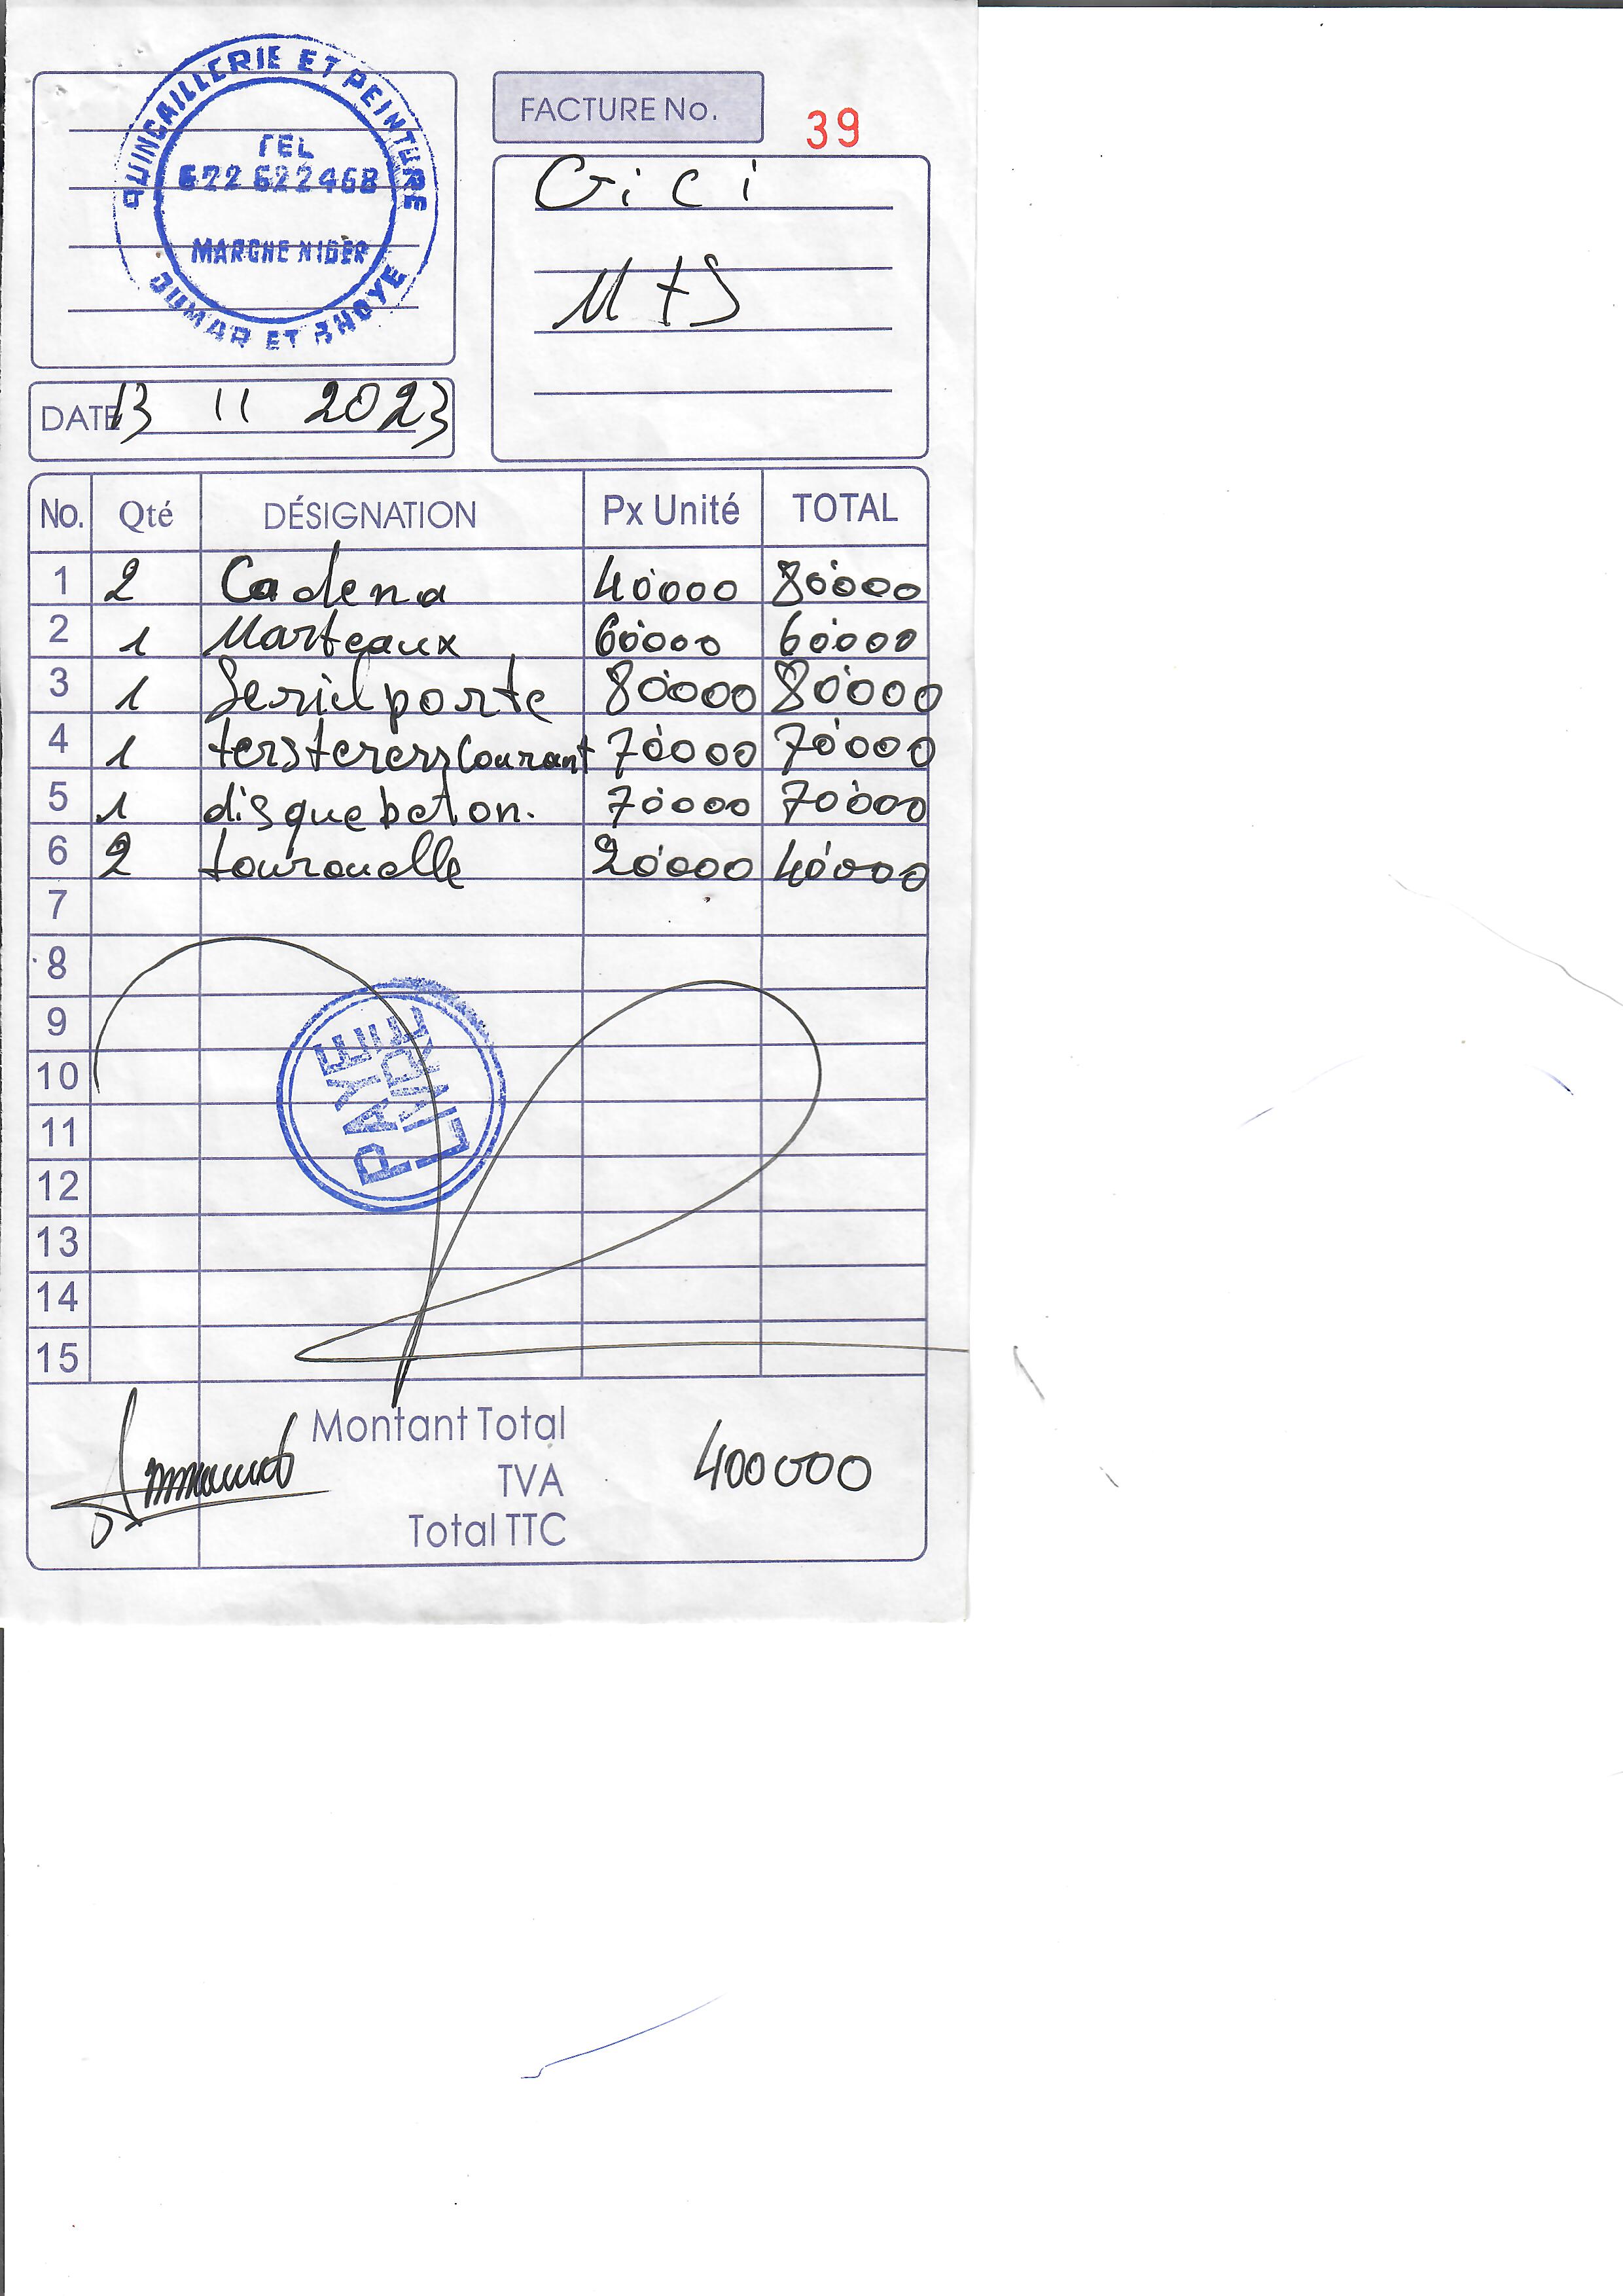 QUINCAILLERIE ET PEINTURE
TEL
622 622468
MARCHE NIGER
OUMAR ET BHOYE
FACTURE No. 39
Gici
M+S
DATE 13 11 2023
No. Qté DÉSIGNATION Px Unité TOTAL
1 2 Cadena 40'000 80'000
2 1 Marteaux 60'000 60'000
3 1 Seriel porte 80'000 80'000
4 1 Courant 70'000 70'000
5 1 disque beton. 70'000 70'000
6 2 20'000 40'000
7
8
9
10
11
12
13
14
15
PAYE
LIVRE
Montant Total
TVA 400000
Total TTC